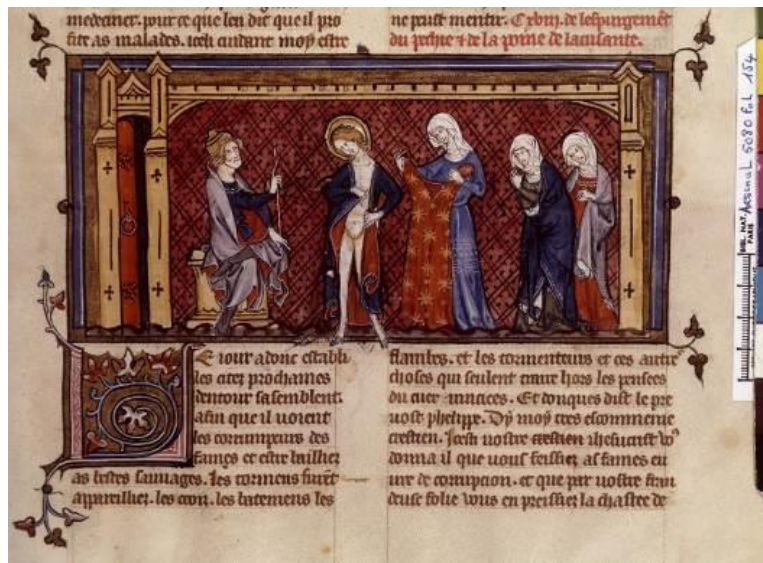 medeciner. pour ce que len die que il pro
fite as malades. iceli cuidant moy estre
ne puist mentir. C xviii. de lespurgement
du pechie & de la poine de lacusante.
E iour adonc establi
les citez prochaines
dentour sasemblent.
afin que il voient
les corrumpeurs des
fames et estre baillier
as bestes sauvages. les tormens furent
appareillier. les croix. les batemens les
flambes. et les tormenteurs et ces autres
choses qui seulent traire hors les pensees
du cuer
Et donques dist le pre
vost phelippe. Dy moy tres escommenie
crestien. Icest vostre crestien ihesucrist vous
donna il que vous feissiez as fames en
ure de corrupcion. et que par vostre frau
deuse folie vous en preissiez la chastee de
Arsenal 5080 fol 154
BIBL. NAT.
PARIS